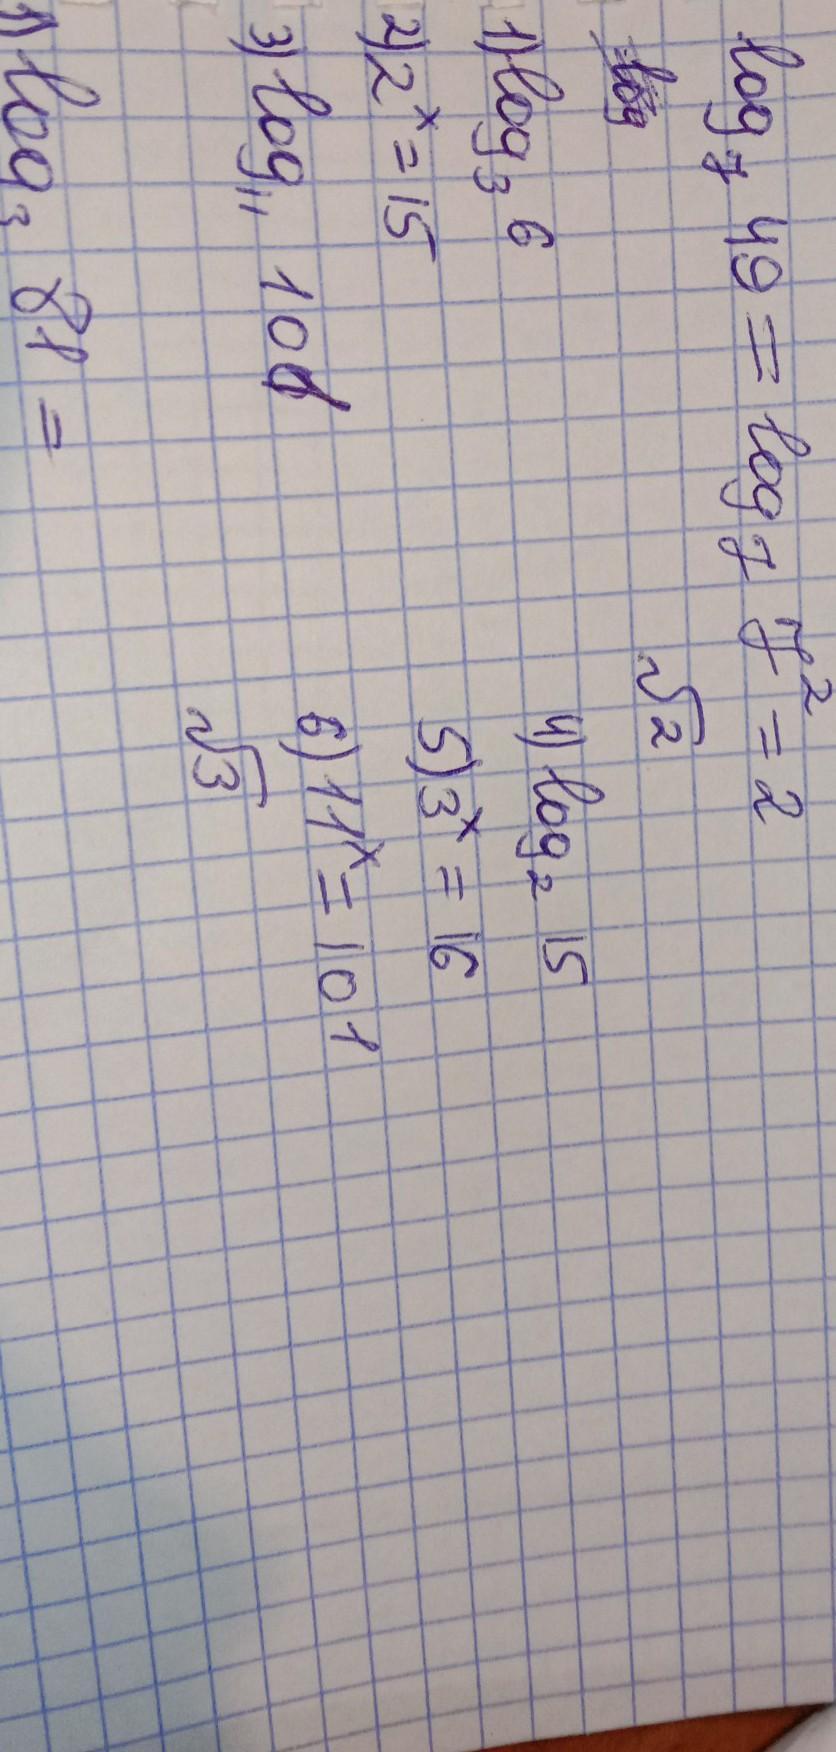 log₇ 49 = log₇ 7² = 2
√2
1) log₃ 6 4) log₂ 15
2) 2ˣ = 15 5) 3ˣ = 16
3) log₁₁ 101 6) 11ˣ = 101
√3
1) log₃ 81 =